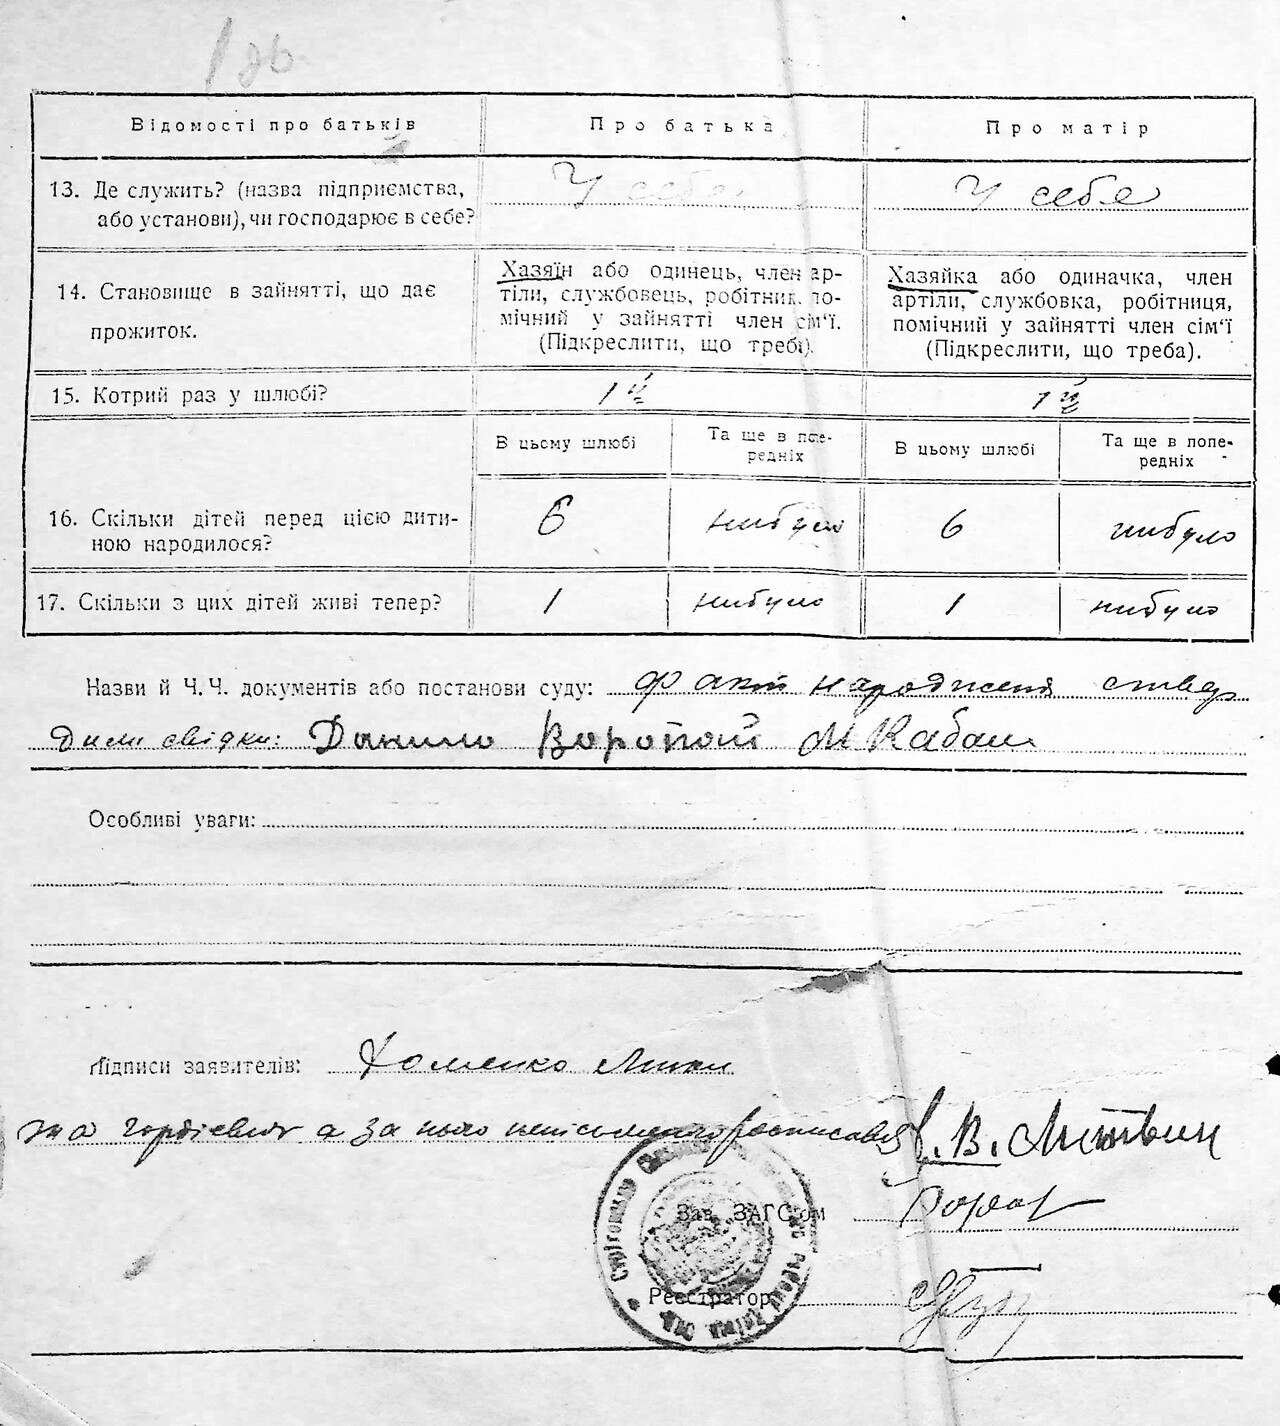 Відомості про батьків
Про батька
Про матір
13. Де служить? (назва підприємства,
або установи), чи господарює в себе?
У себе
У себе
14. Становище в зайнятті, що дає
прожиток.
Хазяїн або одинець, член ар-
тіли, службовець, робітник, по-
мічний у зайнятті член сім'ї.
(Підкреслити, що треба).
Хазяйка або одиначка, член
артіли, службовка, робітниця,
помічний у зайнятті член сім'ї
(Підкреслити, що треба).
15. Котрий раз у шлюбі?
1й
1й
В цьому шлюбі
Та ще в попе-
редніх
В цьому шлюбі
Та ще в попе-
редніх
16. Скільки дітей перед цією дити-
ною народилося?
6
нибуло
6
нибуло
17. Скільки з цих дітей живі тепер?
1
нибуло
1
нибуло
Назви й Ч.Ч. документів або постанови суду: факт народженя ствер
дили свідки: Данило Воропай М Кабаш
Особливі уваги:
Підписи заявителів: Хоменко
а за нього росписався В. Литвин
Зав. ЗАГС'ом
Реєстратор